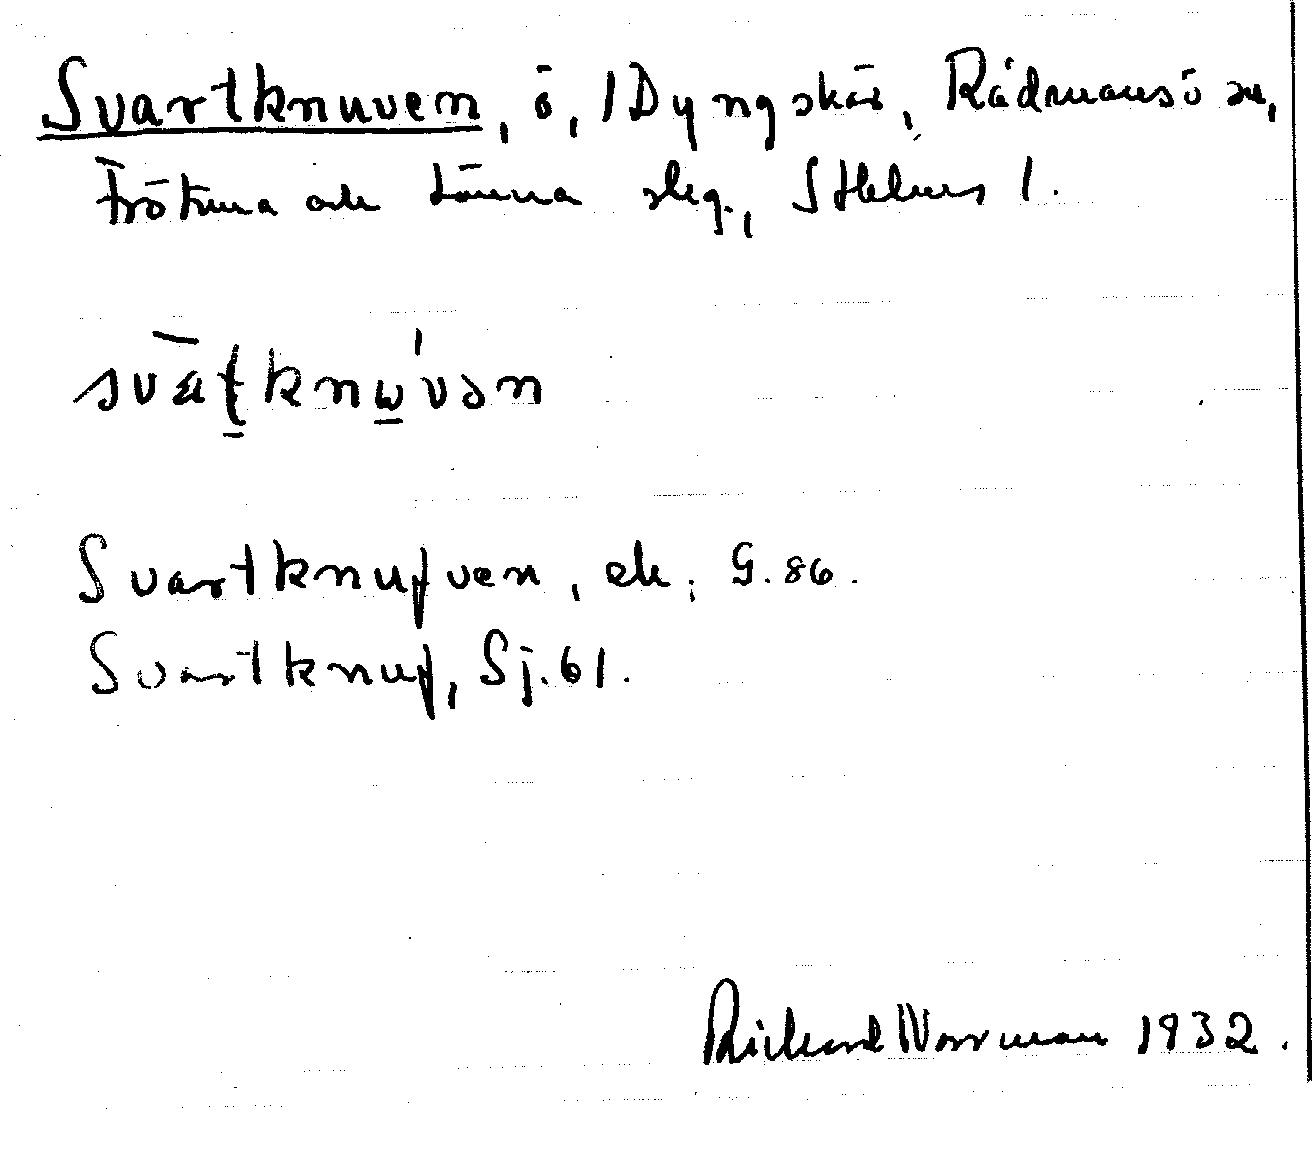 Svartknuven, ö, 1 Dyngskär, Rådmansö sn,
Frötuna och Länna slg., Sthlms l.
svat̲knώ̲vən
Svartknufven, ek. G. 86.
Svartknuf, Sj. 61.
Rickard Norrman 1932.